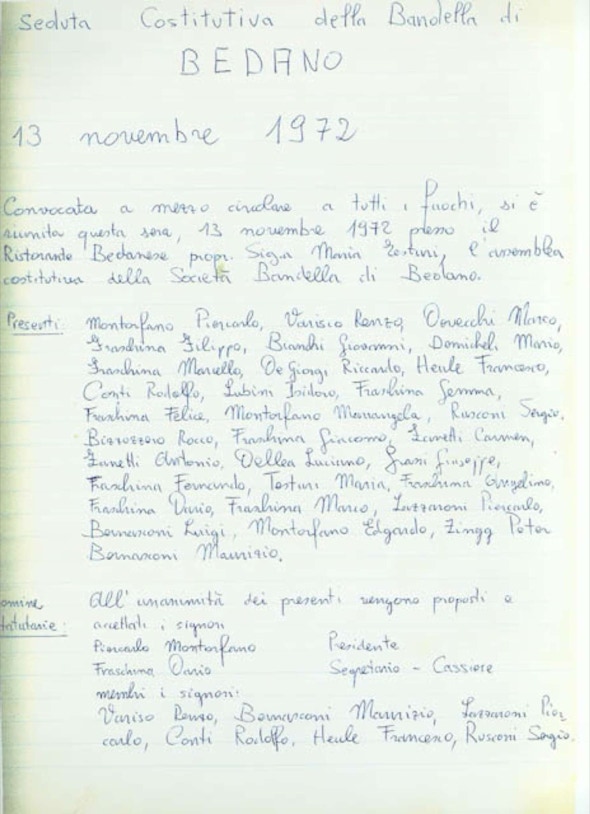 Seduta Costitutiva della Bandella di
BEDANO
13 novembre 1972
Convocata a mezzo circolare a tutti i fuochi, si è
riunita questa sera, 13 novembre 1972 presso il
Ristorante Bedanese propr. Sig.a Maria Testini, l'assemblea
costitutiva della Società Bandella di Bedano.
Presenti: Montorfano Piercarlo, Varisco Renzo, Marco,
Fraschina Filippo, Bianchi Giovanni, Domicheli Mario,
Fraschina Marcello, De Giorgi Riccardo, Heule Francesco,
Conti Rodolfo, Lubini Isidoro, Fraschina Gemma,
Fraschina Felice, Montorfano Mariangela, Rusconi Sergio,
Bizzozzero Rocco, Fraschina Giacomo, Zanetti Carmen,
Zanetti Antonio, Dellea Luciano, Grassi Giuseppe,
Fraschina Fernando, Testini Maria, Fraschina Angelino,
Fraschina Dario, Fraschina Marco, Lazzaroni Piercarlo,
Bernasconi Luigi, Montorfano Edgardo, Zingg Peter
Bernasconi Maurizio.
omine All' unanimità dei presenti vengono proposti e
tatutarie: accettati i signori
Piercarlo Montorfano Presidente
Fraschina Dario Segretario - Cassiere
membri i signori:
Variso Renzo, Bernasconi Maurizio, Lazzaroni Pier
carlo, Conti Rodolfo, Heule Francesco, Rusconi Sergio.